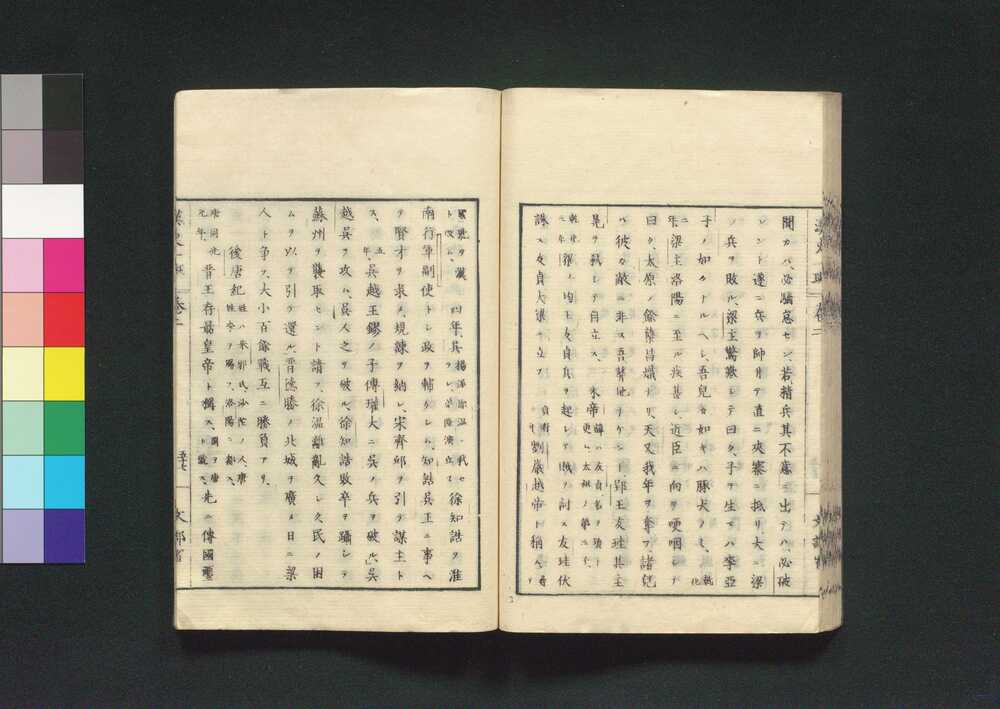 聞カハ、必驕怠セン、若精兵其不意ニ出テハ、必破
レント、遂ニ兵ヲ帥井テ直ニ夾寨ニ抵リ、大ニ梁
ノ兵ヲ敗ル、梁主驚歎シテ曰ク、子ヲ生マハ李亞
子ノ如クナルヘシ、吾兒カ如キハ豚犬ノミ、乾化
二年、梁主洛陽ニ至ル疾甚シ、近臣ニ向ヲ哽咽シテ
曰ク、太原ノ餘蘖昌熾ナリ、天又我年ヲ奪フ、諸兒
ハ彼カ敵ニ非ス、吾葬地ナケント、郢王友珪其主
晃ヲ弑シテ自立ス、末帝
乾化二年、均王友貞兵ヲ起シテ賊ヲ討ス、友珪伏
誅ス、友貞大梁ニ立ツ、劉巖越帝ト稱ス
四年、徐知誥ヲ淮
南行軍副使トシ政ヲ輔ケシム、知誥呉王ニ事ヘ
ヲ賢才ヲ求メ、規諌ヲ納レ、宋齊邱ヲ引テ謀主ト
ス、五年、呉越王鏐ノ子傳瓘大ニ呉ノ兵ヲ破ル、呉
越呉ヲ攻ム、呉人之ヲ破ル、徐知誥敗卒ヲ躡シテ
蘇州ヲ襲取セント請フ、徐温離亂久シク民ノ困
ムヲ以ヲ引テ還ル、晉德勝ノ北城ヲ廣メ日ニ梁
人ト爭フ、大小百餘戰互ニ勝負アリ、
後唐紀 姓ハ朱邪氏、沙陀ノ人、唐姓李ヲ賜フ、洛陽ニ都ス、國ヲ唐ト號ス、
唐同光元年、晉王存勗皇帝ト稱ス、先ニ傳國璽
五十七
文部省